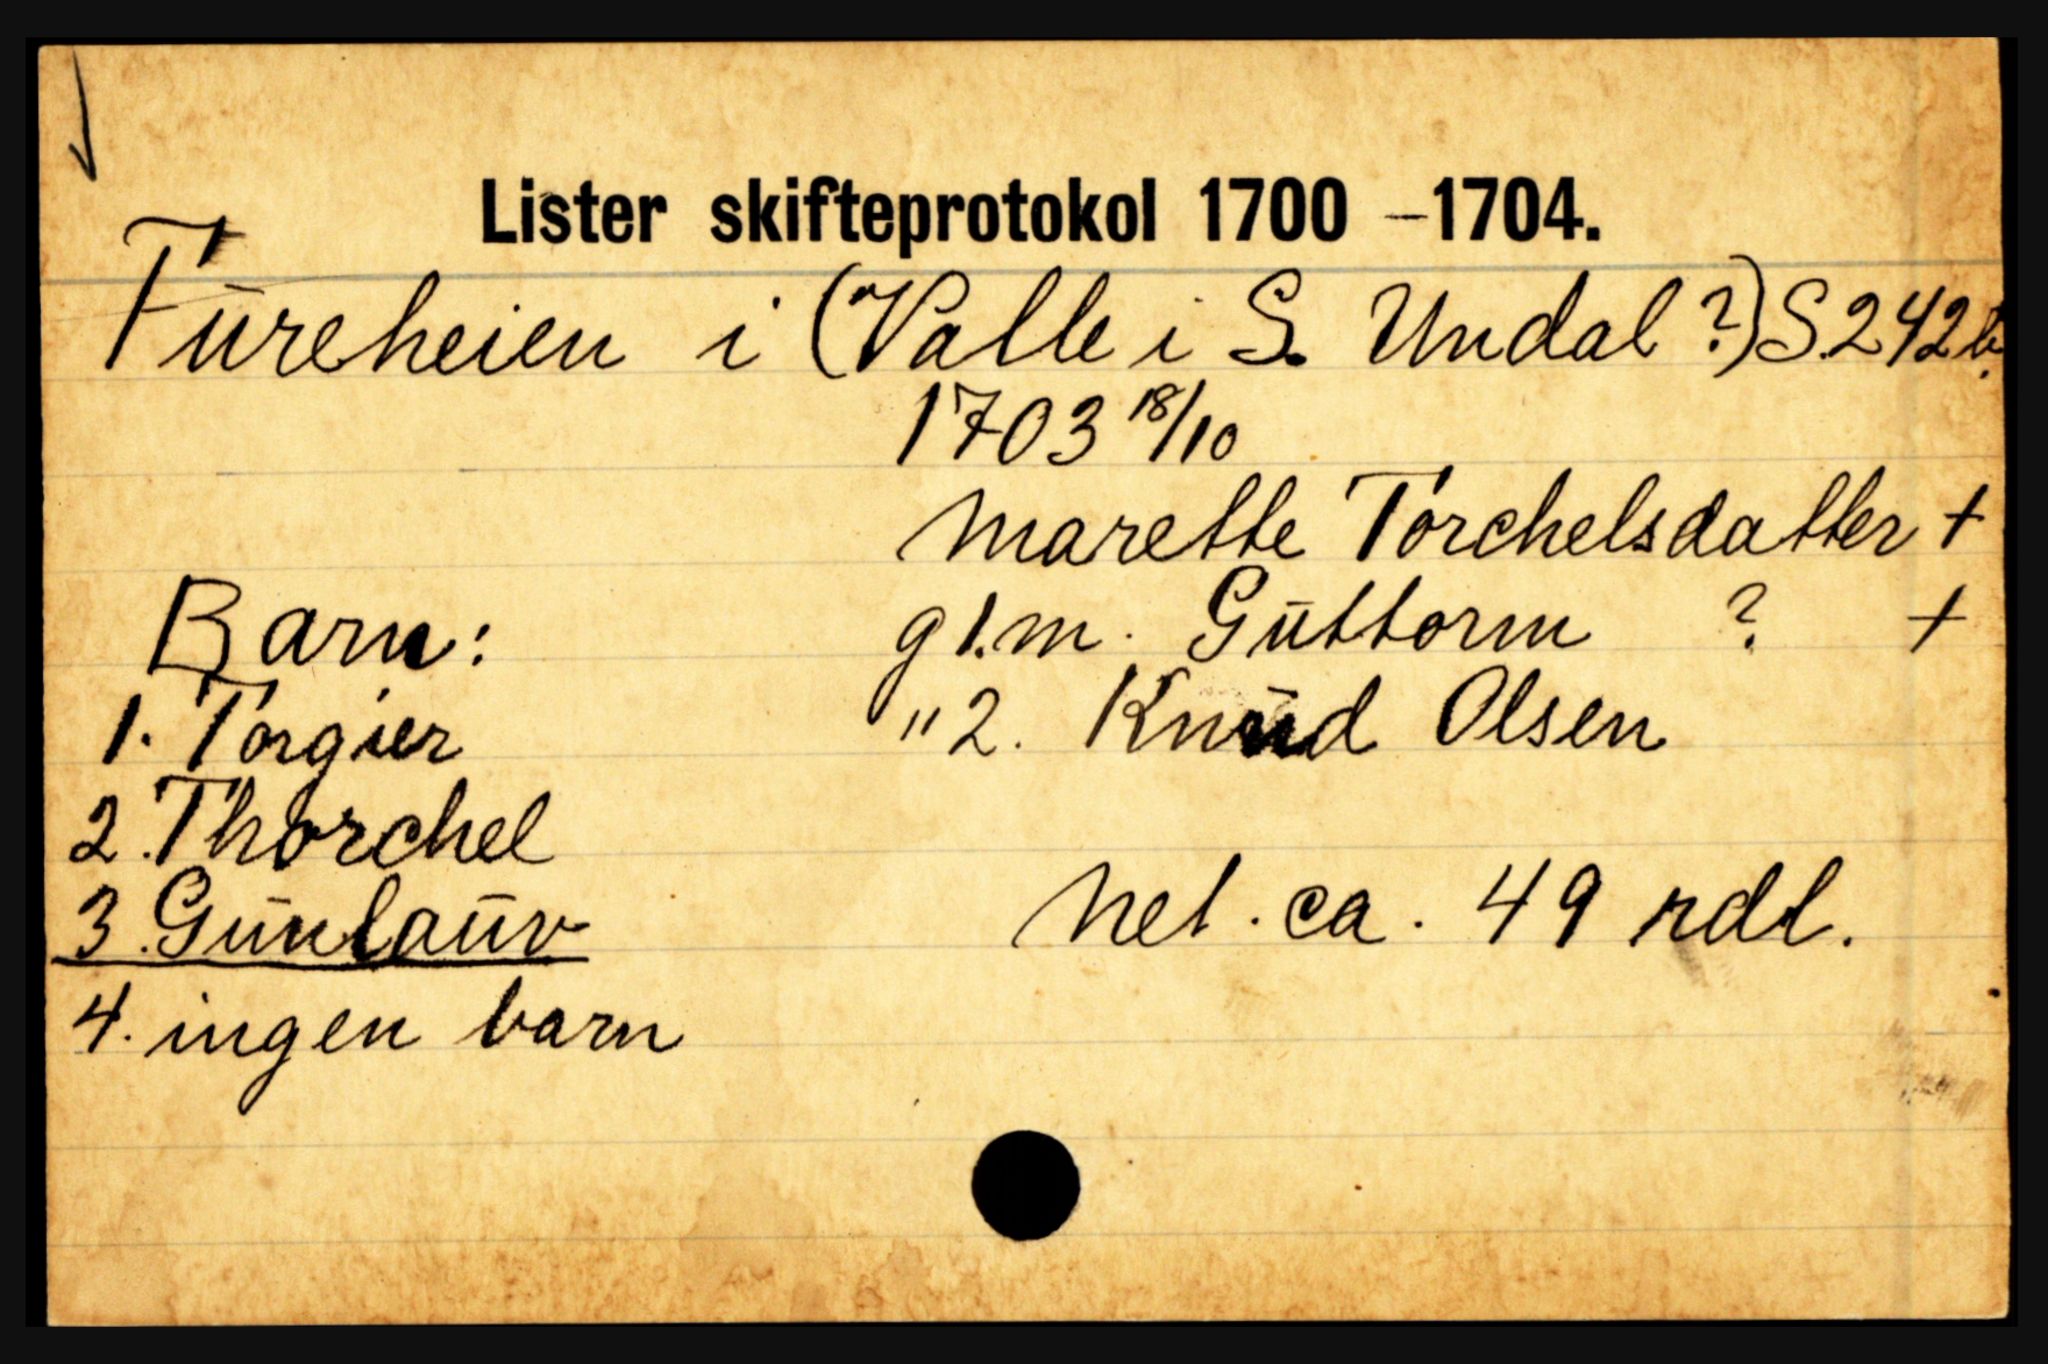 Lister skifteprotokol 1700 – 1704.
Fŭreheien i (Valle i S. Undal?) S. 242b.
1703 18/10
Marette Torchelsdatter +
Barn: g 1.m. Gŭttorm ? +
1. Torgier " 2. Knŭd Olsen
2. Thorchel
3. Gŭnlaŭv Net. ca. 49 rdl.
4. ingen barn